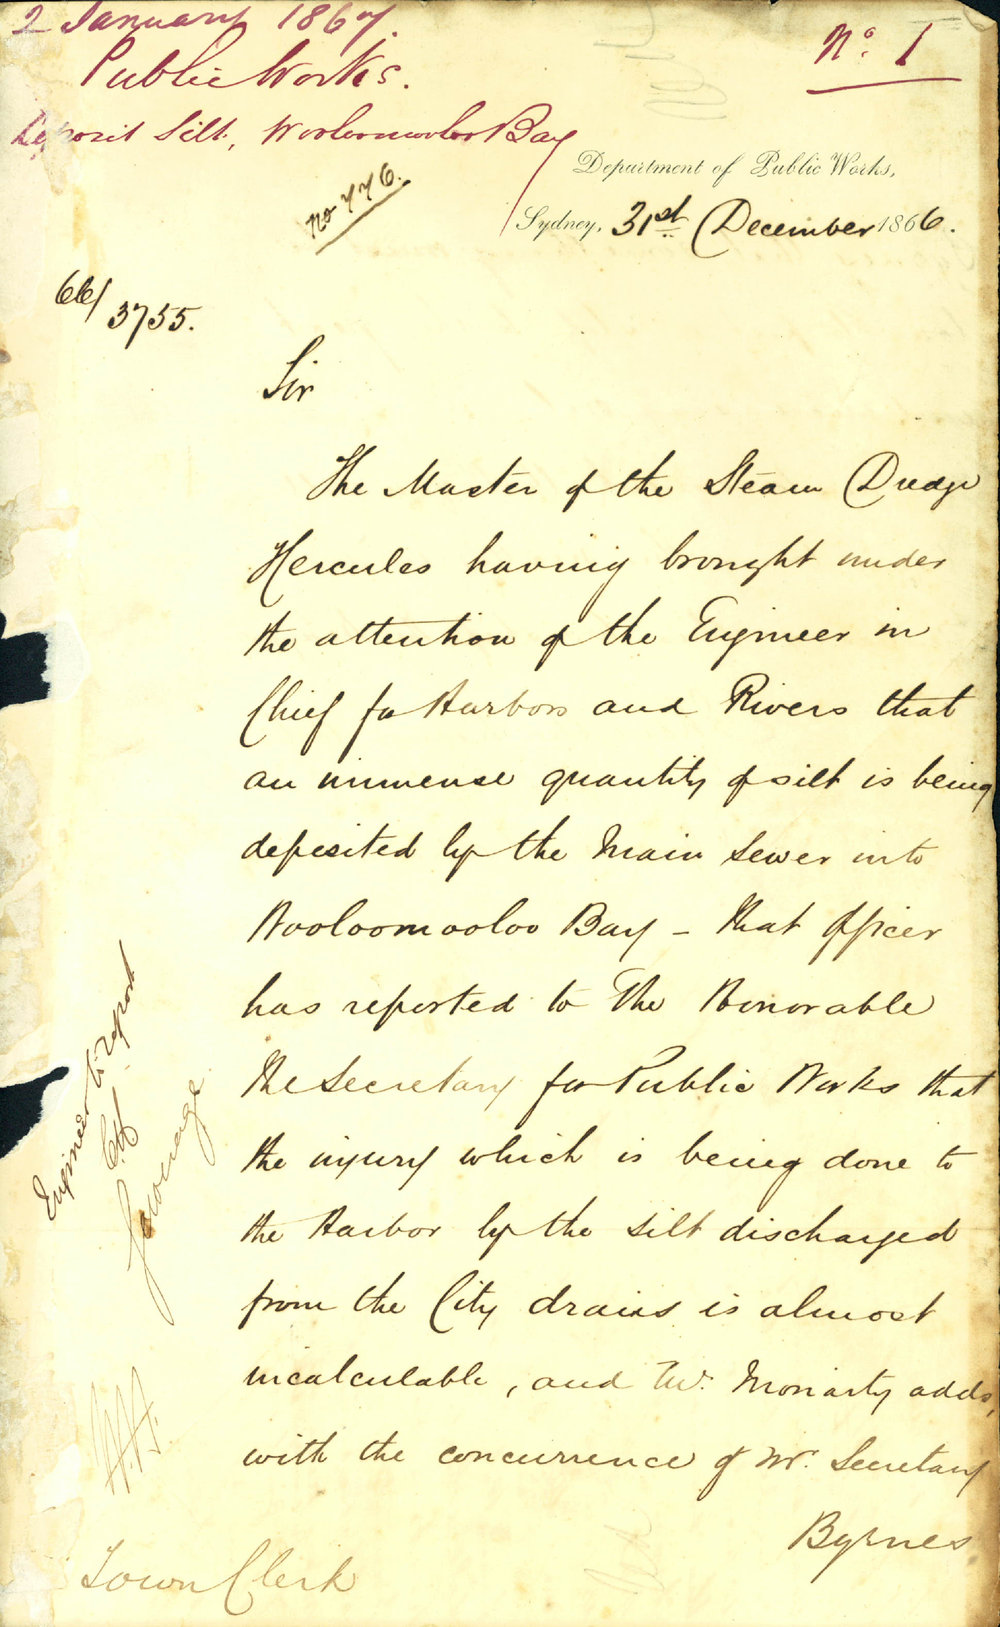 2 January 1867.
Public Works.
Deposit Silt, Wooloomooloo Bay
No 1
No 776.
Department of Public Works,
Sydney, 31st December 1866.
66/3755.
Sir
The Master of the Steam Dredge
Hercules having brought under
the attention of the Engineer in
Chief for Harbors and Rivers that
an immense quantity of silt is being
deposited by the Main Sewer into
Wooloomooloo Bay - that Officer
has reported to The Honorable
the Secretary for Public Works that
the injury which is being done to
the Harbor by the silt discharged
from the City drains is almost
incalculable, and Mr. Moriarty adds,
with the concurrence of Mr. Secretary
Byrnes
Engineer to report
Sewerage
Town Clerk